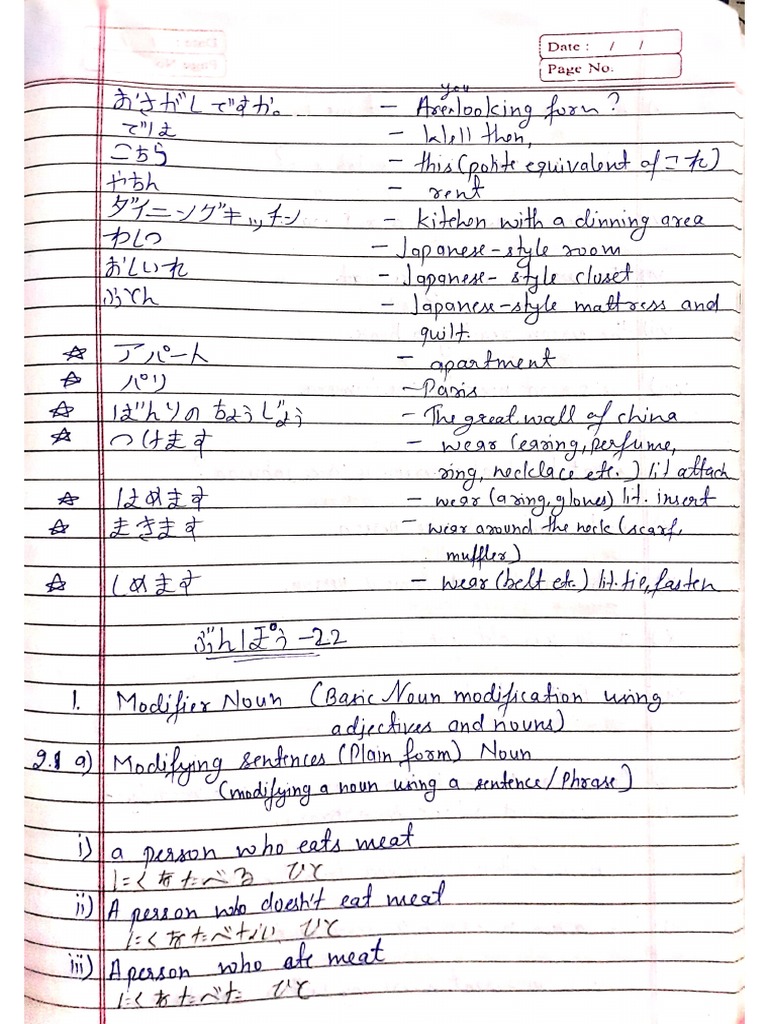 Date : / /
Page No.
おさがしですか。 - Are you looking forn ?
では - Well then,
こちら - this (polite equivalent of これ)
やちん - rent
ダイニングキッチン - kitchen with a dinning area
わしつ - Japanese-style room
おしいれ - Japanese-style closet
ふとん - Japanese-style mattress and
quilt.
☆ アパート - apartment
☆ パリ - Paris
☆ ばんりのちょうじょう - The great wall of china
☆ つけます - wear (earing, perfume,
ring, necklace etc.) lit attach
☆ はめます - wear (a ring, gloves) lit. insert
☆ まきます - wear around the neck (scarf,
muffler)
☆ しめます - wear (belt etc.) lit. tie, fasten
ぶんぽう - 22
1. Modifier Noun (Basic Noun modification using
adjectives and nouns)
2.1 a) Modifying sentences (Plain form) Noun
(modifying a noun using a sentence/Phrase)
i) a person who eats meat
にくをたべる ひと
ii) A person who doesn't eat meat
にくをたべない ひと
iii) A person who ate meat
にくをたべた ひと